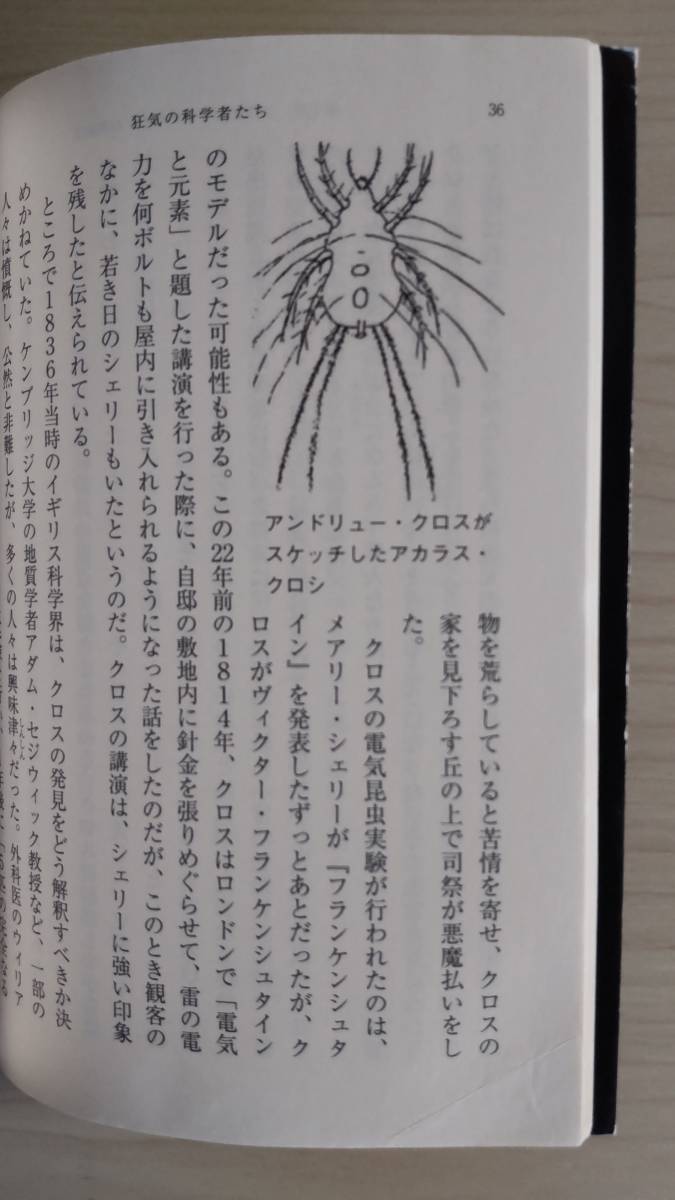 狂気の科学者たち
36
アンドリュー・クロスが
スケッチしたアカラス・
クロシ
物を荒らしていると苦情を寄せ、クロスの
家を見下ろす丘の上で司祭が悪魔払いをし
た。
クロスの電気昆虫実験が行われたのは、
メアリー・シェリーが『フランケンシュタ
イン』を発表したずっとあとだったが、ク
ロスがヴィクター・フランケンシュタイン
のモデルだった可能性もある。この22年前の1814年、クロスはロンドンで「電気
と元素」と題した講演を行った際に、自邸の敷地内に針金を張りめぐらせて、雷の電
力を何ボルトも屋内に引き入れられるようになった話をしたのだが、このとき観客の
なかに、若き日のシェリーもいたというのだ。クロスの講演は、シェリーに強い印象
を残したと伝えられている。
ところで1836年当時のイギリス科学界は、クロスの発見をどう解釈すべきか決
めかねていた。ケンブリッジ大学の地質学者アダム・セジウィック教授など、一部の
人々は憤慨し、公然と非難したが、多くの人々は興味津々だった。外科医のウィリア
しんしん